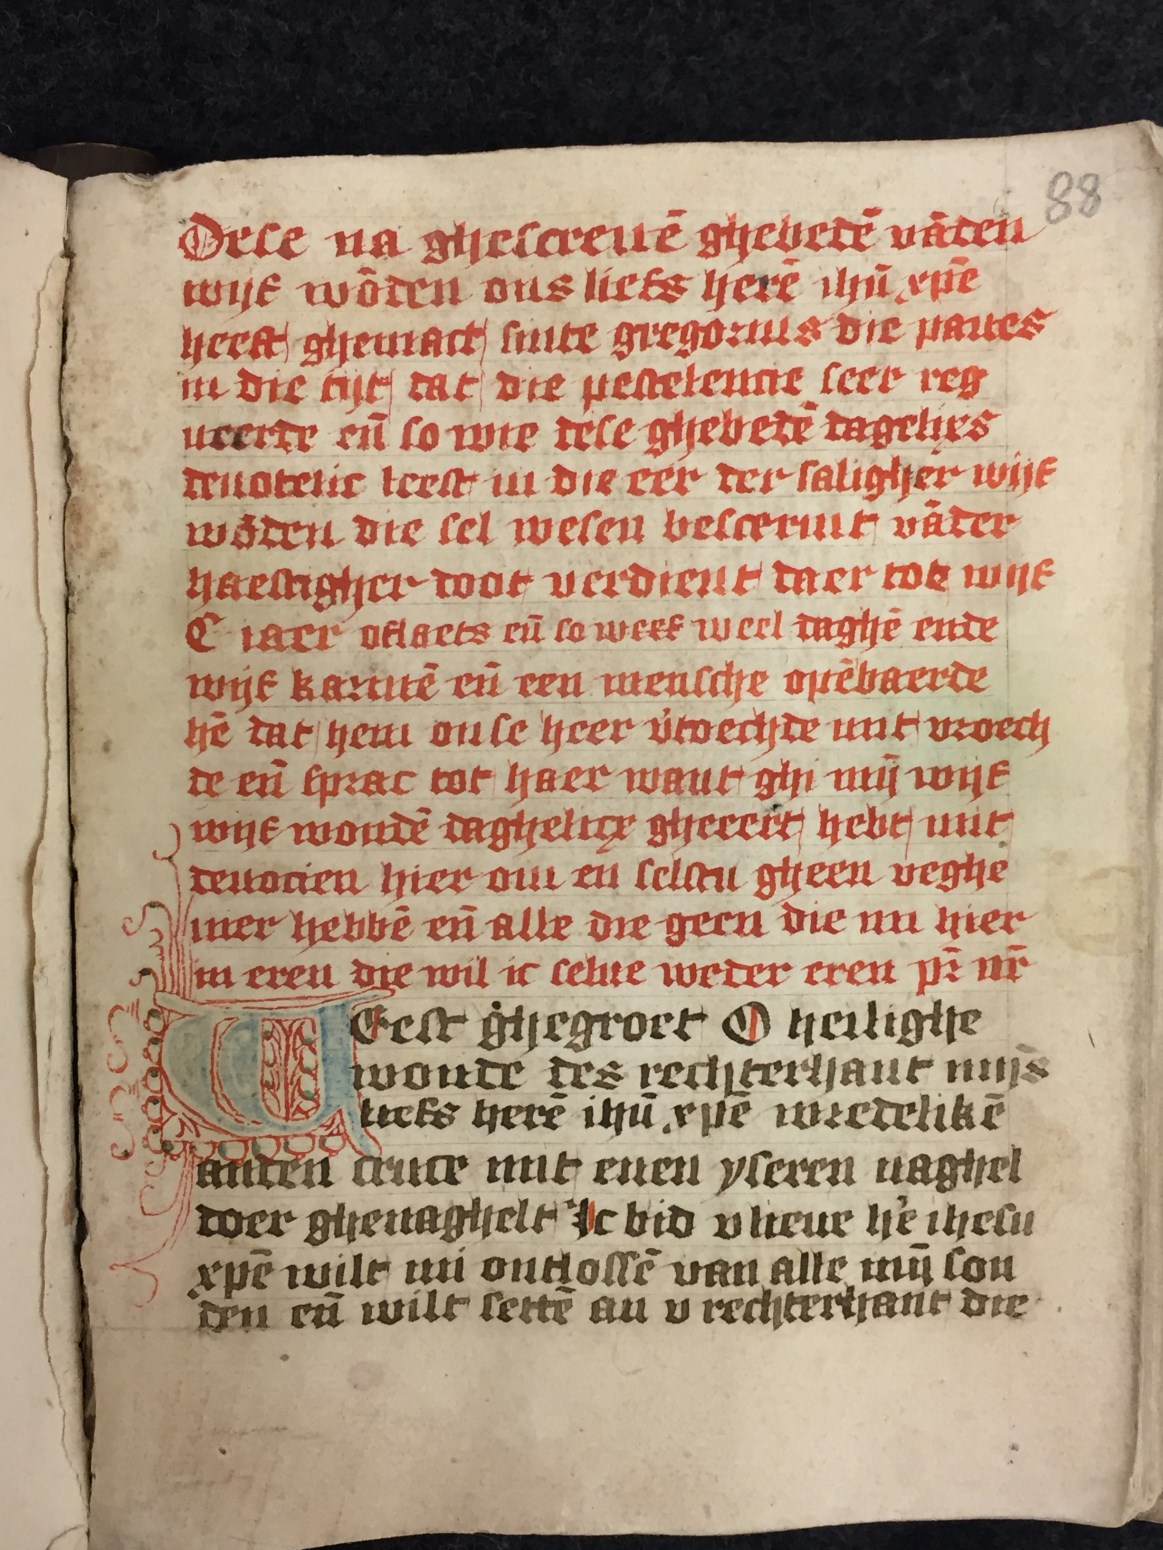 88
Dese na ghescreuē ghebetē vādēn
wijf wōden ons liefs herē ihū xpē
heeft ghemaect sinte gregorius die paues
in die tijt dat die pestelencie seer reg
neerde eñ so wie dese ghebetē dagelixs
deuotelic leest in die eer der saligher wijf
wōden die sel wesen bescermt vāder
haestigher doot verdient daer toe wijf
C iaer oflaets eñ so weef weel daghē ende
wijf karinē eñ een mensche opēbaerde
hē dat hem onse heer v̓toechde mit vroech
de eñ sprac tot haer want ghi mijn wijf
wijf wondē daghelicx gheeert hebt mit
deuocien hier om en selstu gheen veghe
uier hebbē eñ alle die geen die mi hier
in eren die wil ic selue weder eren pr̄ nr̄
Weest ghegroet O heilighe
wonde des rechterhant mijns
liefs herē ihū xpē wredelikē
anden cruce mit enen yseren naghel
doer ghenaghelt Ic bid v lieue hē ihesu
xpē wilt mi ontlossē van alle mijn son
den eñ wilt settē an v rechterhant die